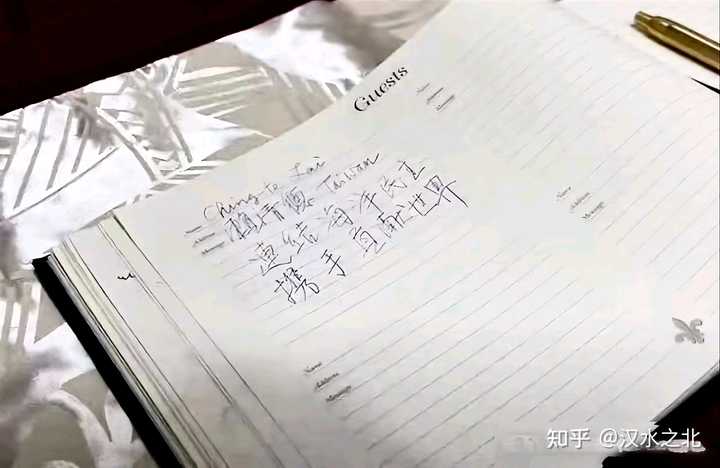 Guests
Name
Ching-te Lai
Address
賴清德 Taiwan
Message
連結海洋民主
携手貢献世界
Name
Address
Message
Name
Address
Message
Name
Message
知乎 @汉水之北